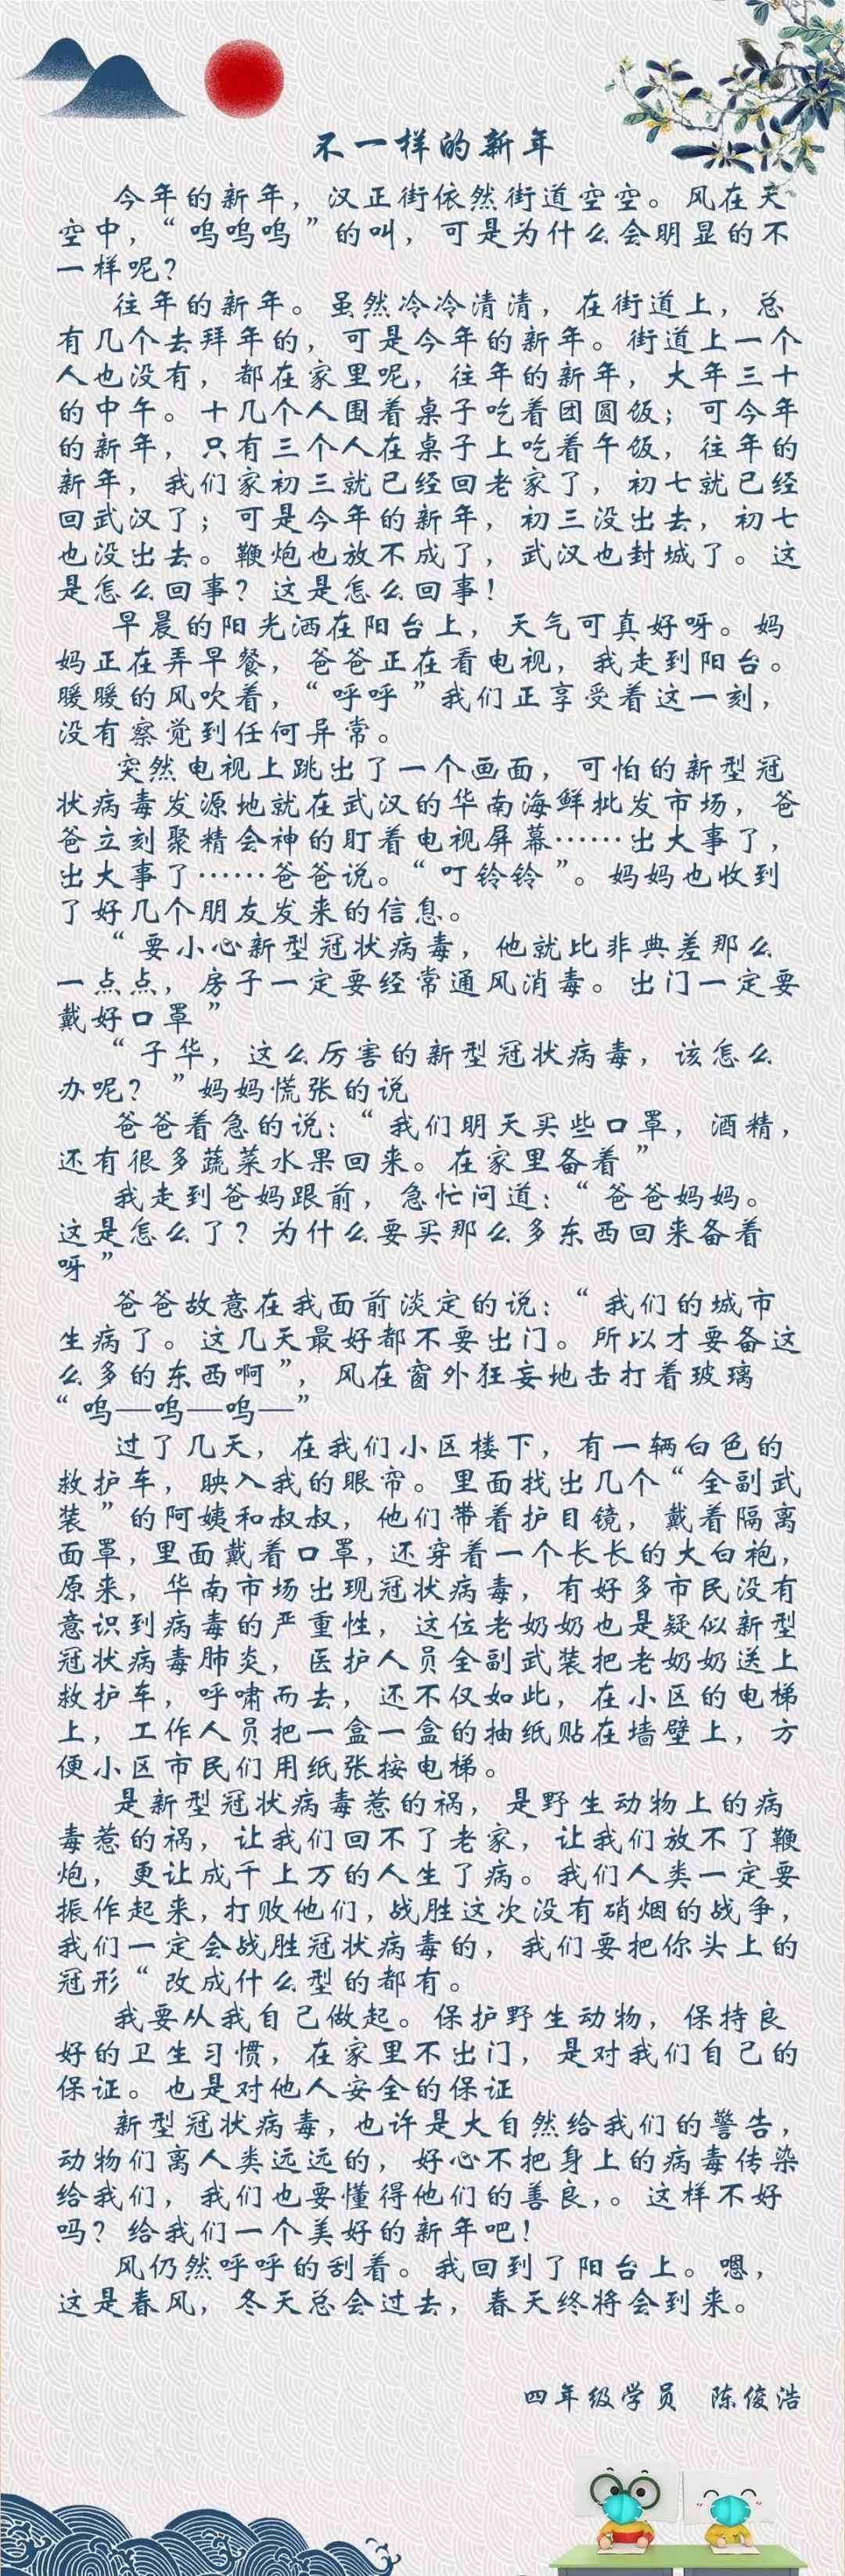 不一样的新年
今年的新年，汉正街依然街道空空。风在天
空中，“呜呜呜”的叫，可是为什么会明显的不
一样呢？
往年的新年。虽然冷冷清清，在街道上，总
有几个去拜年的，可是今年的新年。街道上一个
人也没有，都在家里呢，往年的新年，大年三十
的中午。十几个人围着桌子吃着团圆饭；可今年
的新年，只有三个人在桌子上吃着午饭，往年的
新年，我们家初三就已经回老家了，初七就已经
回武汉了；可是今年的新年，初三没出去，初七
也没出去。鞭炮也放不成了，武汉也封城了。这
是怎么回事？这是怎么回事！
早晨的阳光洒在阳台上，天气可真好呀。妈
妈正在弄早餐，爸爸正在看电视，我走到阳台。
暖暖的风吹着，“呼呼”我们正享受着这一刻，
没有察觉到任何异常。
突然电视上跳出了一个画面，可怕的新型冠
状病毒发源地就在武汉的华南海鲜批发市场，爸
爸立刻聚精会神的盯着电视屏幕……出大事了，
出大事了……爸爸说。“叮铃铃”。妈妈也收到
了好几个朋友发来的信息。
“要小心新型冠状病毒，他就比非典差那么
一点点，房子一定要经常通风消毒。出门一定要
戴好口罩”
“子华，这么厉害的新型冠状病毒，该怎么
办呢？”妈妈慌张的说
爸爸着急的说：“我们明天买些口罩，酒精，
还有很多蔬菜水果回来。在家里备着”
我走到爸妈跟前，急忙问道：“爸爸妈妈。
这是怎么了？为什么要买那么多东西回来备着
呀”
爸爸故意在我面前淡定的说：“我们的城市
生病了。这几天最好都不要出门。所以才要备这
么多的东西啊”，风在窗外狂妄地击打着玻璃
“呜—呜—呜—”
过了几天，在我们小区楼下，有一辆白色的
救护车，映入我的眼帘。里面找出几个“全副武
装”的阿姨和叔叔，他们带着护目镜，戴着隔离
面罩，里面戴着口罩，还穿着一个长长的大白袍，
原来，华南市场出现冠状病毒，有好多市民没有
意识到病毒的严重性，这位老奶奶也是疑似新型
冠状病毒肺炎，医护人员全副武装把老奶奶送上
救护车，呼啸而去，还不仅如此，在小区的电梯
上，工作人员把一盒一盒的抽纸贴在墙壁上，方
便小区市民们用纸张按电梯。
是新型冠状病毒惹的祸，是野生动物上的病
毒惹的祸，让我们回不了老家，让我们放不了鞭
炮，更让成千上万的人生了病。我们人类一定要
振作起来，打败他们，战胜这次没有硝烟的战争，
我们一定会战胜冠状病毒的，我们要把你头上的
冠形“改成什么型的都有。
我要从我自己做起。保护野生动物，保持良
好的卫生习惯，在家里不出门，是对我们自己的
保证。也是对他人安全的保证
新型冠状病毒，也许是大自然给我们的警告，
动物们离人类远远的，好心不把身上的病毒传染
给我们，我们也要懂得他们的善良，。这样不好
吗？给我们一个美好的新年吧！
风仍然呼呼的刮着。我回到了阳台上。嗯，
这是春风，冬天总会过去，春天终将会到来。
四年级学员 陈俊浩